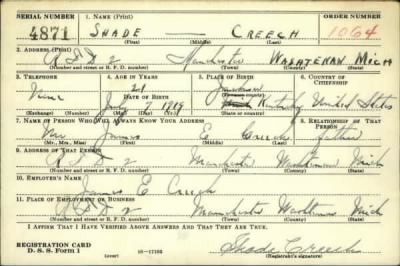 SERIAL NUMBER 1. NAME (Print) ORDER NUMBER
4871 SHADE — CREECH 1064
(First) (Middle) (Last)
2. ADDRESS (Print)
R.F.D 2 Manchester WASHTENAW MICH
(Number and street or R. F. D. number) (Town) (County) (State)
3. TELEPHONE 4. AGE IN YEARS 5. PLACE OF BIRTH 6. COUNTRY OF CITIZENSHIP
21
None DATE OF BIRTH
July 7 1919 Kentucky United States
(Exchange) (Number) (Mo.) (Day) (Yr.) (Town) (County) (State)
7. NAME OF PERSON WHO WILL ALWAYS KNOW YOUR ADDRESS 8. RELATIONSHIP OF THAT PERSON
Mr James E Creech father
(Mr., Mrs., Miss) (First) (Middle) (Last)
9. ADDRESS OF THAT PERSON
R.F.D 2 Manchester Washtenaw Mich
(Number and street or R. F. D. number) (Town) (County) (State)
10. EMPLOYER'S NAME
James E Creech
11. PLACE OF EMPLOYMENT OR BUSINESS
R.F.D 2 Manchester Washtenaw Mich
(Number and street or R. F. D. number) (Town) (County) (State)
I AFFIRM THAT I HAVE VERIFIED ABOVE ANSWERS AND THAT THEY ARE TRUE.
REGISTRATION CARD
D. S. S. Form 1 16—17105 Shade Creech
(Registrant's signature)